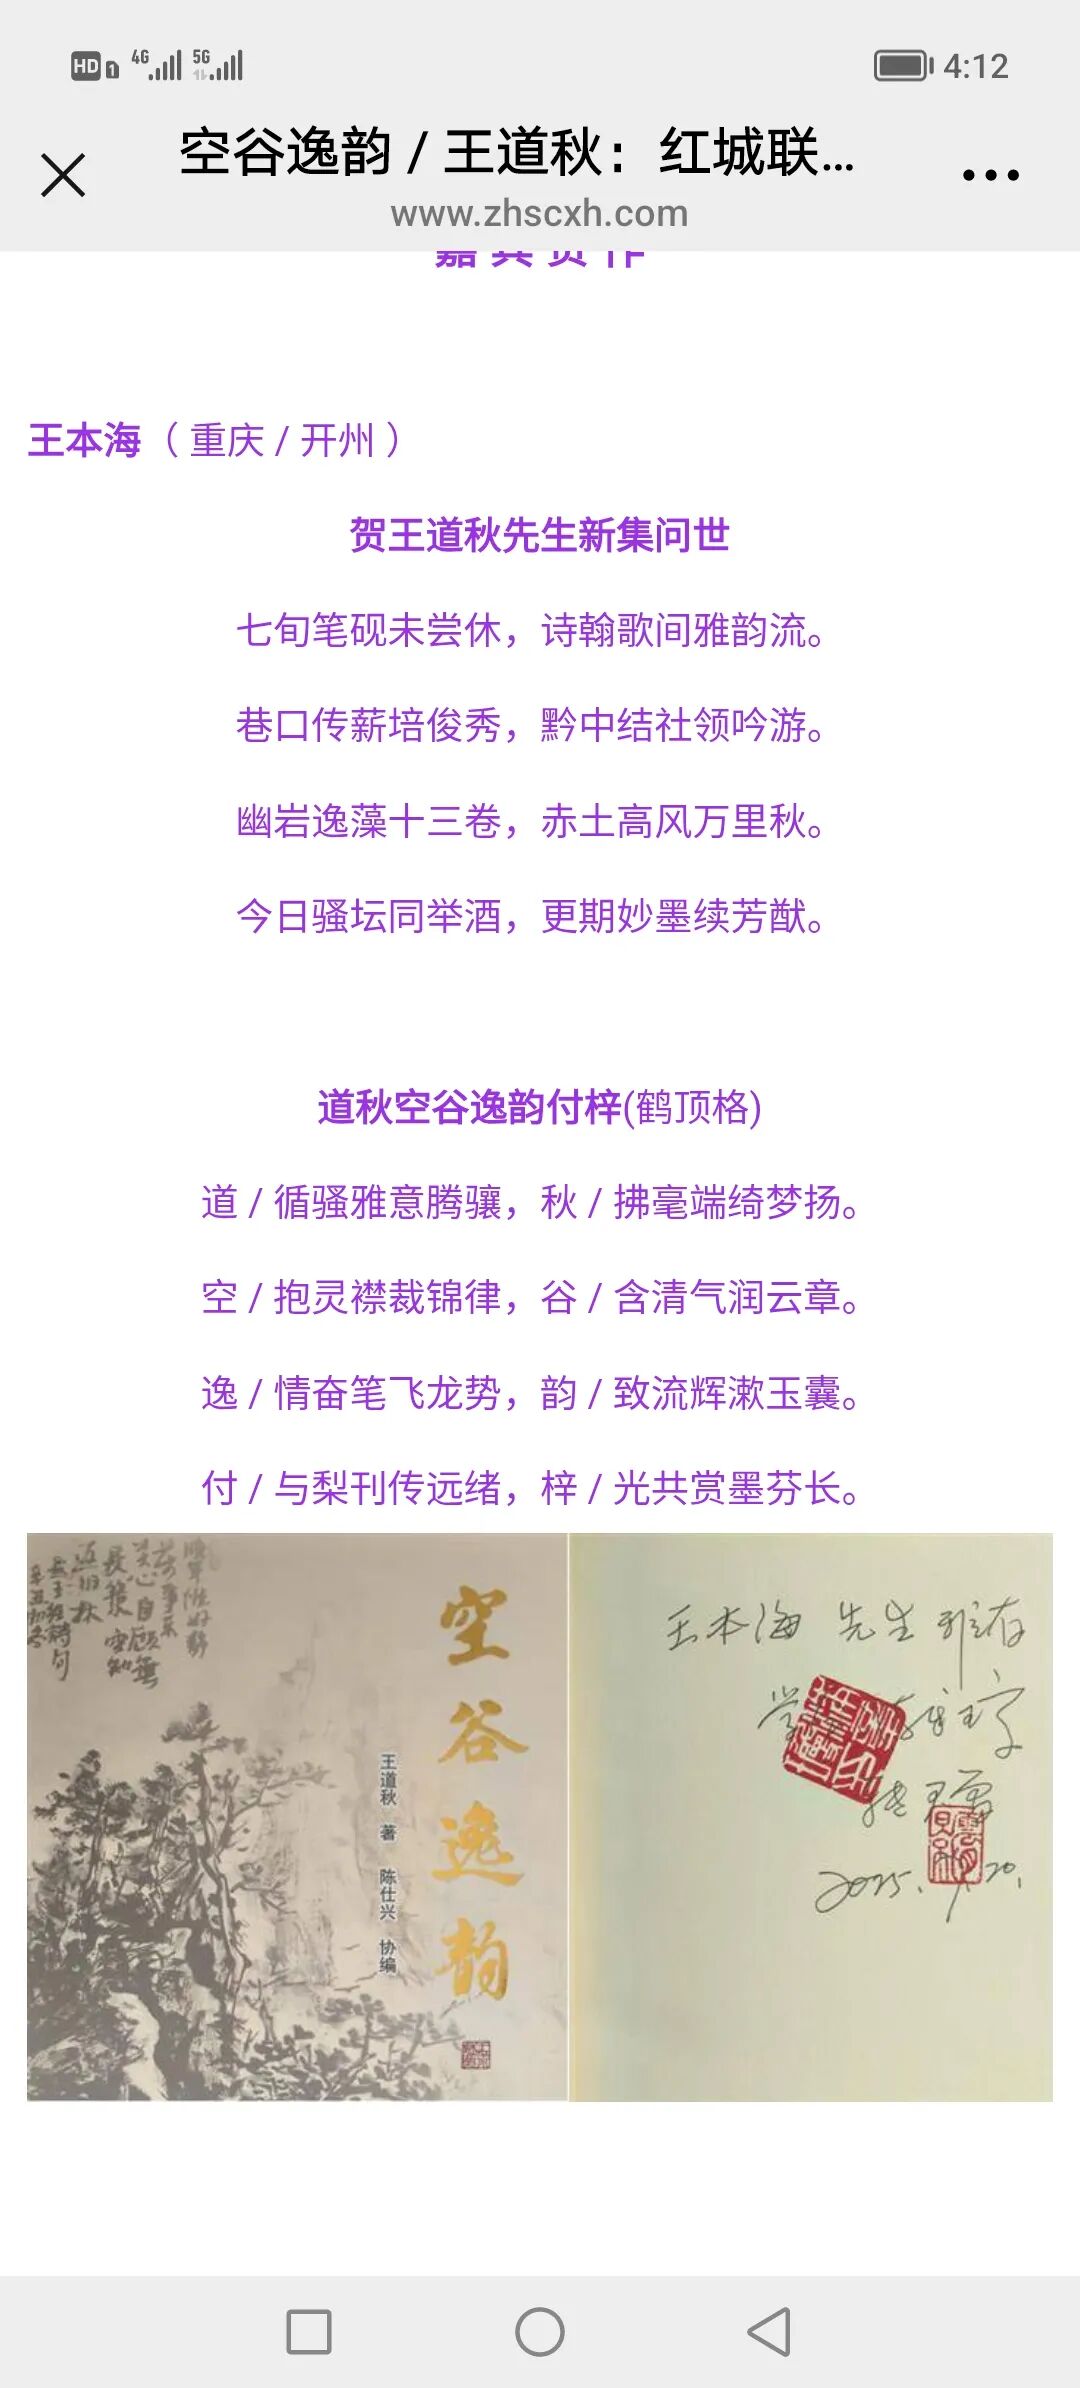 HD 1 4G 5G 4:12
空谷逸韵 / 王道秋：红城联...
www.zhscxh.com
王本海（ 重庆 / 开州 ）
贺王道秋先生新集问世
七旬笔砚未尝休，诗翰歌间雅韵流。
巷口传薪培俊秀，黔中结社领吟游。
幽岩逸藻十三卷，赤土高风万里秋。
今日骚坛同举酒，更期妙墨续芳猷。
道秋空谷逸韵付梓(鹤顶格)
道 / 循骚雅意腾骧，秋 / 拂毫端绮梦扬。
空 / 抱灵襟裁锦律，谷 / 含清气润云章。
逸 / 情奋笔飞龙势，韵 / 致流辉漱玉囊。
付 / 与梨刊传远绪，梓 / 光共赏墨芬长。
空谷逸韵
王道秋 著 陈仕兴 协编
王本海 先生 雅存
2025.